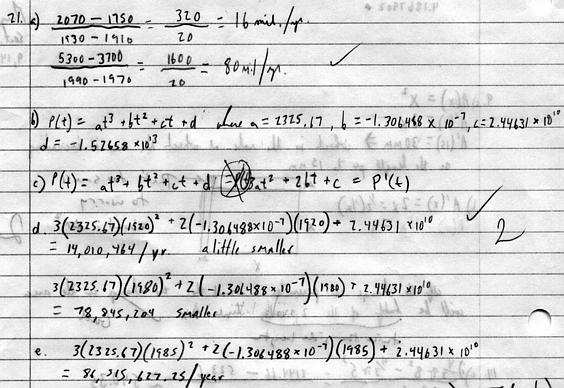 21. a) (2070 - 1750)/(1930 - 1910) = 320/20 = 16 mil./yr.
(5300 - 3700)/(1990 - 1970) = 1600/20 = 80 mil/yr.
b) P(t) = at³ + bt² + ct + d where a = 2325.67, b = -1.306488 x 10⁻⁷, c = 2.44631 x 10¹⁰
d = -1.52658 x 10¹³
c) P(t) = at³ + bt² + ct + d 3at² + 2bt + c = P'(t)
d. 3(2325.67)(1920)² + 2(-1.306488x10⁻⁷)(1920) + 2.44631 x 10¹⁰
= 14,010,464 / yr. a little smaller
2
3(2325.67)(1980)² + 2(-1.306488 x 10⁻⁷)(1980) + 2.44631 x 10¹⁰
= 78,845,204 smaller
e. 3(2325.67)(1985)² + 2(-1.306488 x 10⁻⁷)(1985) + 2.44631 x 10¹⁰
= 86,515,627.25 / year